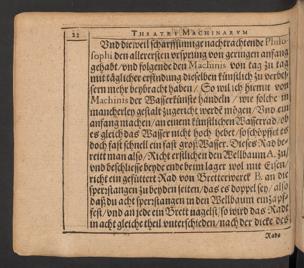 22 THEATRI MACHINARVM
Und die weil scharffsinnige nachtrachtende Philo-
sophi den allerersten vrsprung von geringen anfang
gehabt / vnd folgends den Machinis von tag zu tag
mit täglicher erfindung dieselben künstlich zu verbes-
sern mehr beybracht haben / So wil ich hiemit von
Machinis der Wasserkünste handeln / wie solche in
mancherley gestalt zugericht werden mögen / Und ein
anfang machen / an einem künstlichen Wasserrad / ob
es gleich das Wasser nicht hoch hebet / so schöpffet es
doch fast schnell ein fast gros Wasser. Dieses Rad be-
reitt man also / Richt erstlichen den Wellbaum A. zu /
vnd beschliesse beyde ende beim lager wol mit Eisen /
richt ein gefüttert Rad von Bretterwerck B. an die
sperrstangen zu beyden seiten / das es doppel sey / also
daß du acht sperrstangen in den Wellbaum einzapf-
fest / vnd an jede ein Brett nagelst / so wird das Rad
in acht gleiche theil vnterschieden / nach der dicke des
Rads